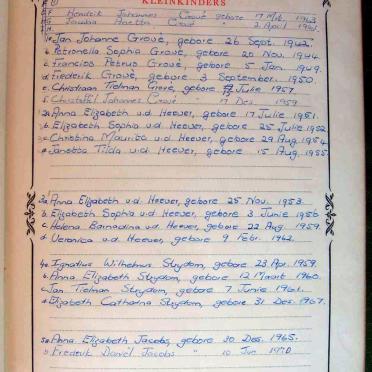 KLEINKINDERS
F Hendrik Johannes Grové gebore 17 Feb. 1963
G Jacoba Hendrina Grové 2 April 1961
1a Jan Johanne Grové, gebore 26 Sept. 1942.
b Petronella Sophia Grové, gebore 20 Nov. 1944.
c Francios Petrus Grové, gebore 5 Jan. 1949.
d Frederik Grové, gebore 3 September. 1950.
e. Christiaan Tielman Grové, gebore 7 Julie 1957
f. Christoffel Johannes Grové " 17 Des. 1959
2a Anna Elizabeth v.d Heever, gebore 17 Julie 1951.
b. Elizabeth Sophia v.d. Heever, gebore 25 Julie 1952
c. Christina Maurita v.d Heever, gebore 29 Aug 1954
Janetta Tilda v.d Heever, gebore 15 Aug 1955.
3a Anna Elizabeth v.d Heever, gebore 25 Nov. 1953.
b. Elizabeth Sophia v.d Heever, gebore 3 Junie 1956
c. Helena Barnadina v.d Heever, gebore 22 Aug 1959.
d. Veronica v.d. Heever, gebore 9 Febr. 1962.
4a Ignatius Wilhelmus Strydom, gebore 23 Apr. 1959.
b. Anna Elizabeth Strydom, gebore 12 Maart 1960.
c Jan Tielman Strydom, gebore 7 Junie 1961.
d Elizabeth Catharina Strydom, gebore 31 Des. 1967.
5a Anna Elizabeth Jacobs, gebore 30 Des. 1965.
b Frederik Daniël Jacobs " 10 Jun 1970